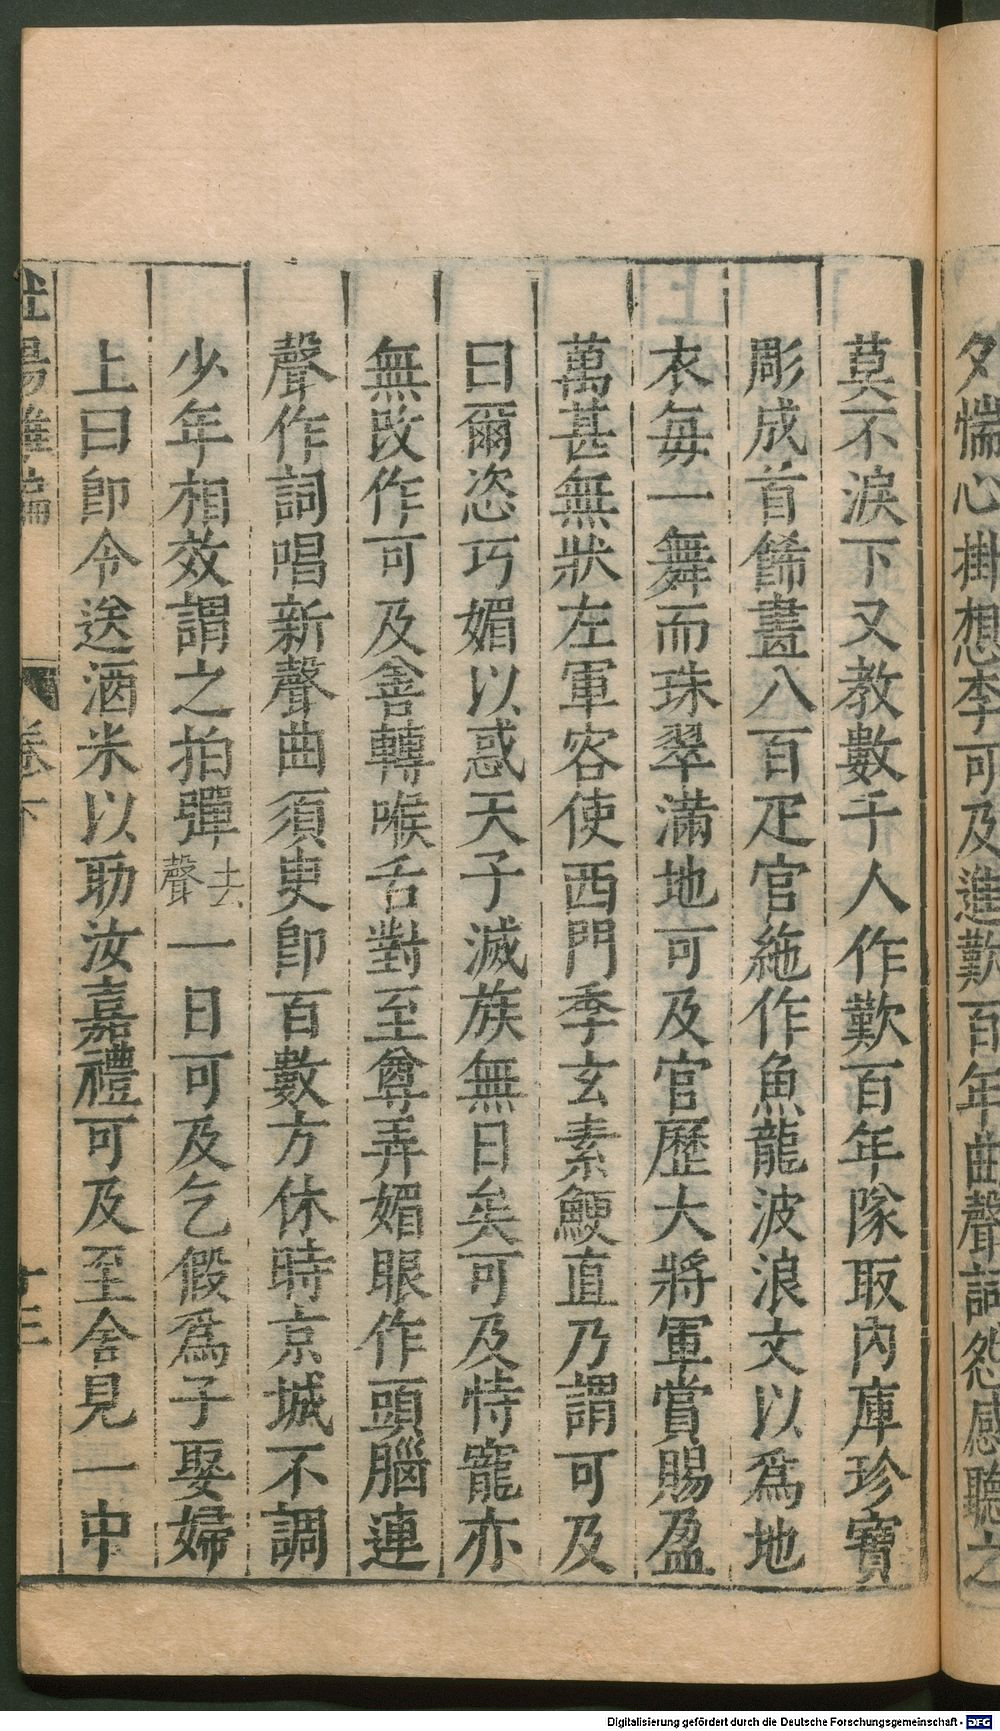 夕惴心掛想李可及進歎百年曲聲詞怨感聽之
莫不淚下又教數千人作歎百年隊取內庫珍寶
彫成首餙畫八百疋官絁作魚龍波浪文以爲地
衣每一舞而珠翠滿地可及官歷大將軍賞賜盈
萬甚無狀左軍容使西門季玄素鯁直乃謂可及
曰爾恣巧媚以惑天子滅族無日矣可及恃寵亦
無改作可及善轉喉舌對至尊弄媚眼作頭腦連
聲作詞唱新聲曲須臾即百數方休時京城不調
少年相效謂之拍彈去聲一日可及乞假爲子娶婦
上曰即令送酒米以助汝嘉禮可及至舍見一中
杜陽雜編 卷下 十三
Digitalisierung gefördert durch die Deutsche Forschungsgemeinschaft - DFG